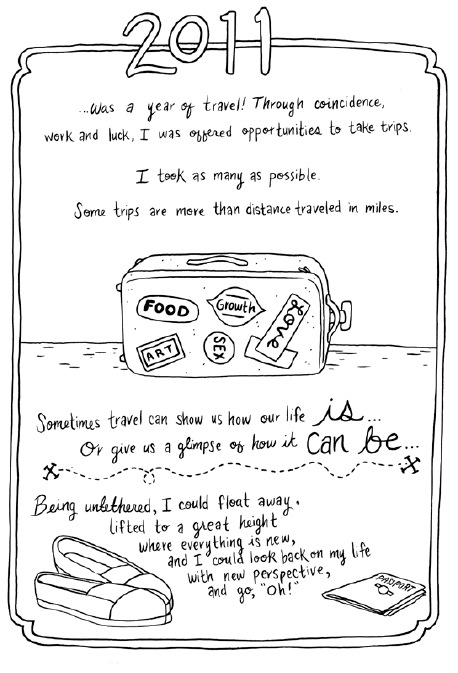 2011
...was a year of travel! Through coincidence,
work and luck, I was offered opportunities to take trips.
I took as many as possible.
Some trips are more than distance traveled in miles.
FOOD
Growth
Love
ART
SEX
Sometimes travel can show us how our life is...
Or give us a glimpse of how it can be...
Being untethered, I could float away.
lifted to a great height
where everything is new,
and I could look back on my life
with new perspective,
and go, "Oh!"
PASSPORT